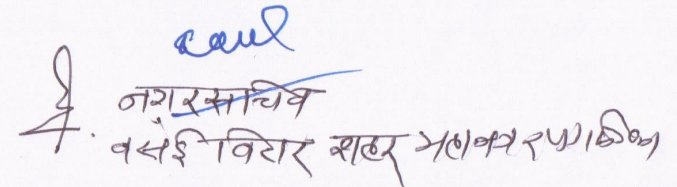 प्र. नगरसचिव
वसई विरार शहर महानगरपालिका